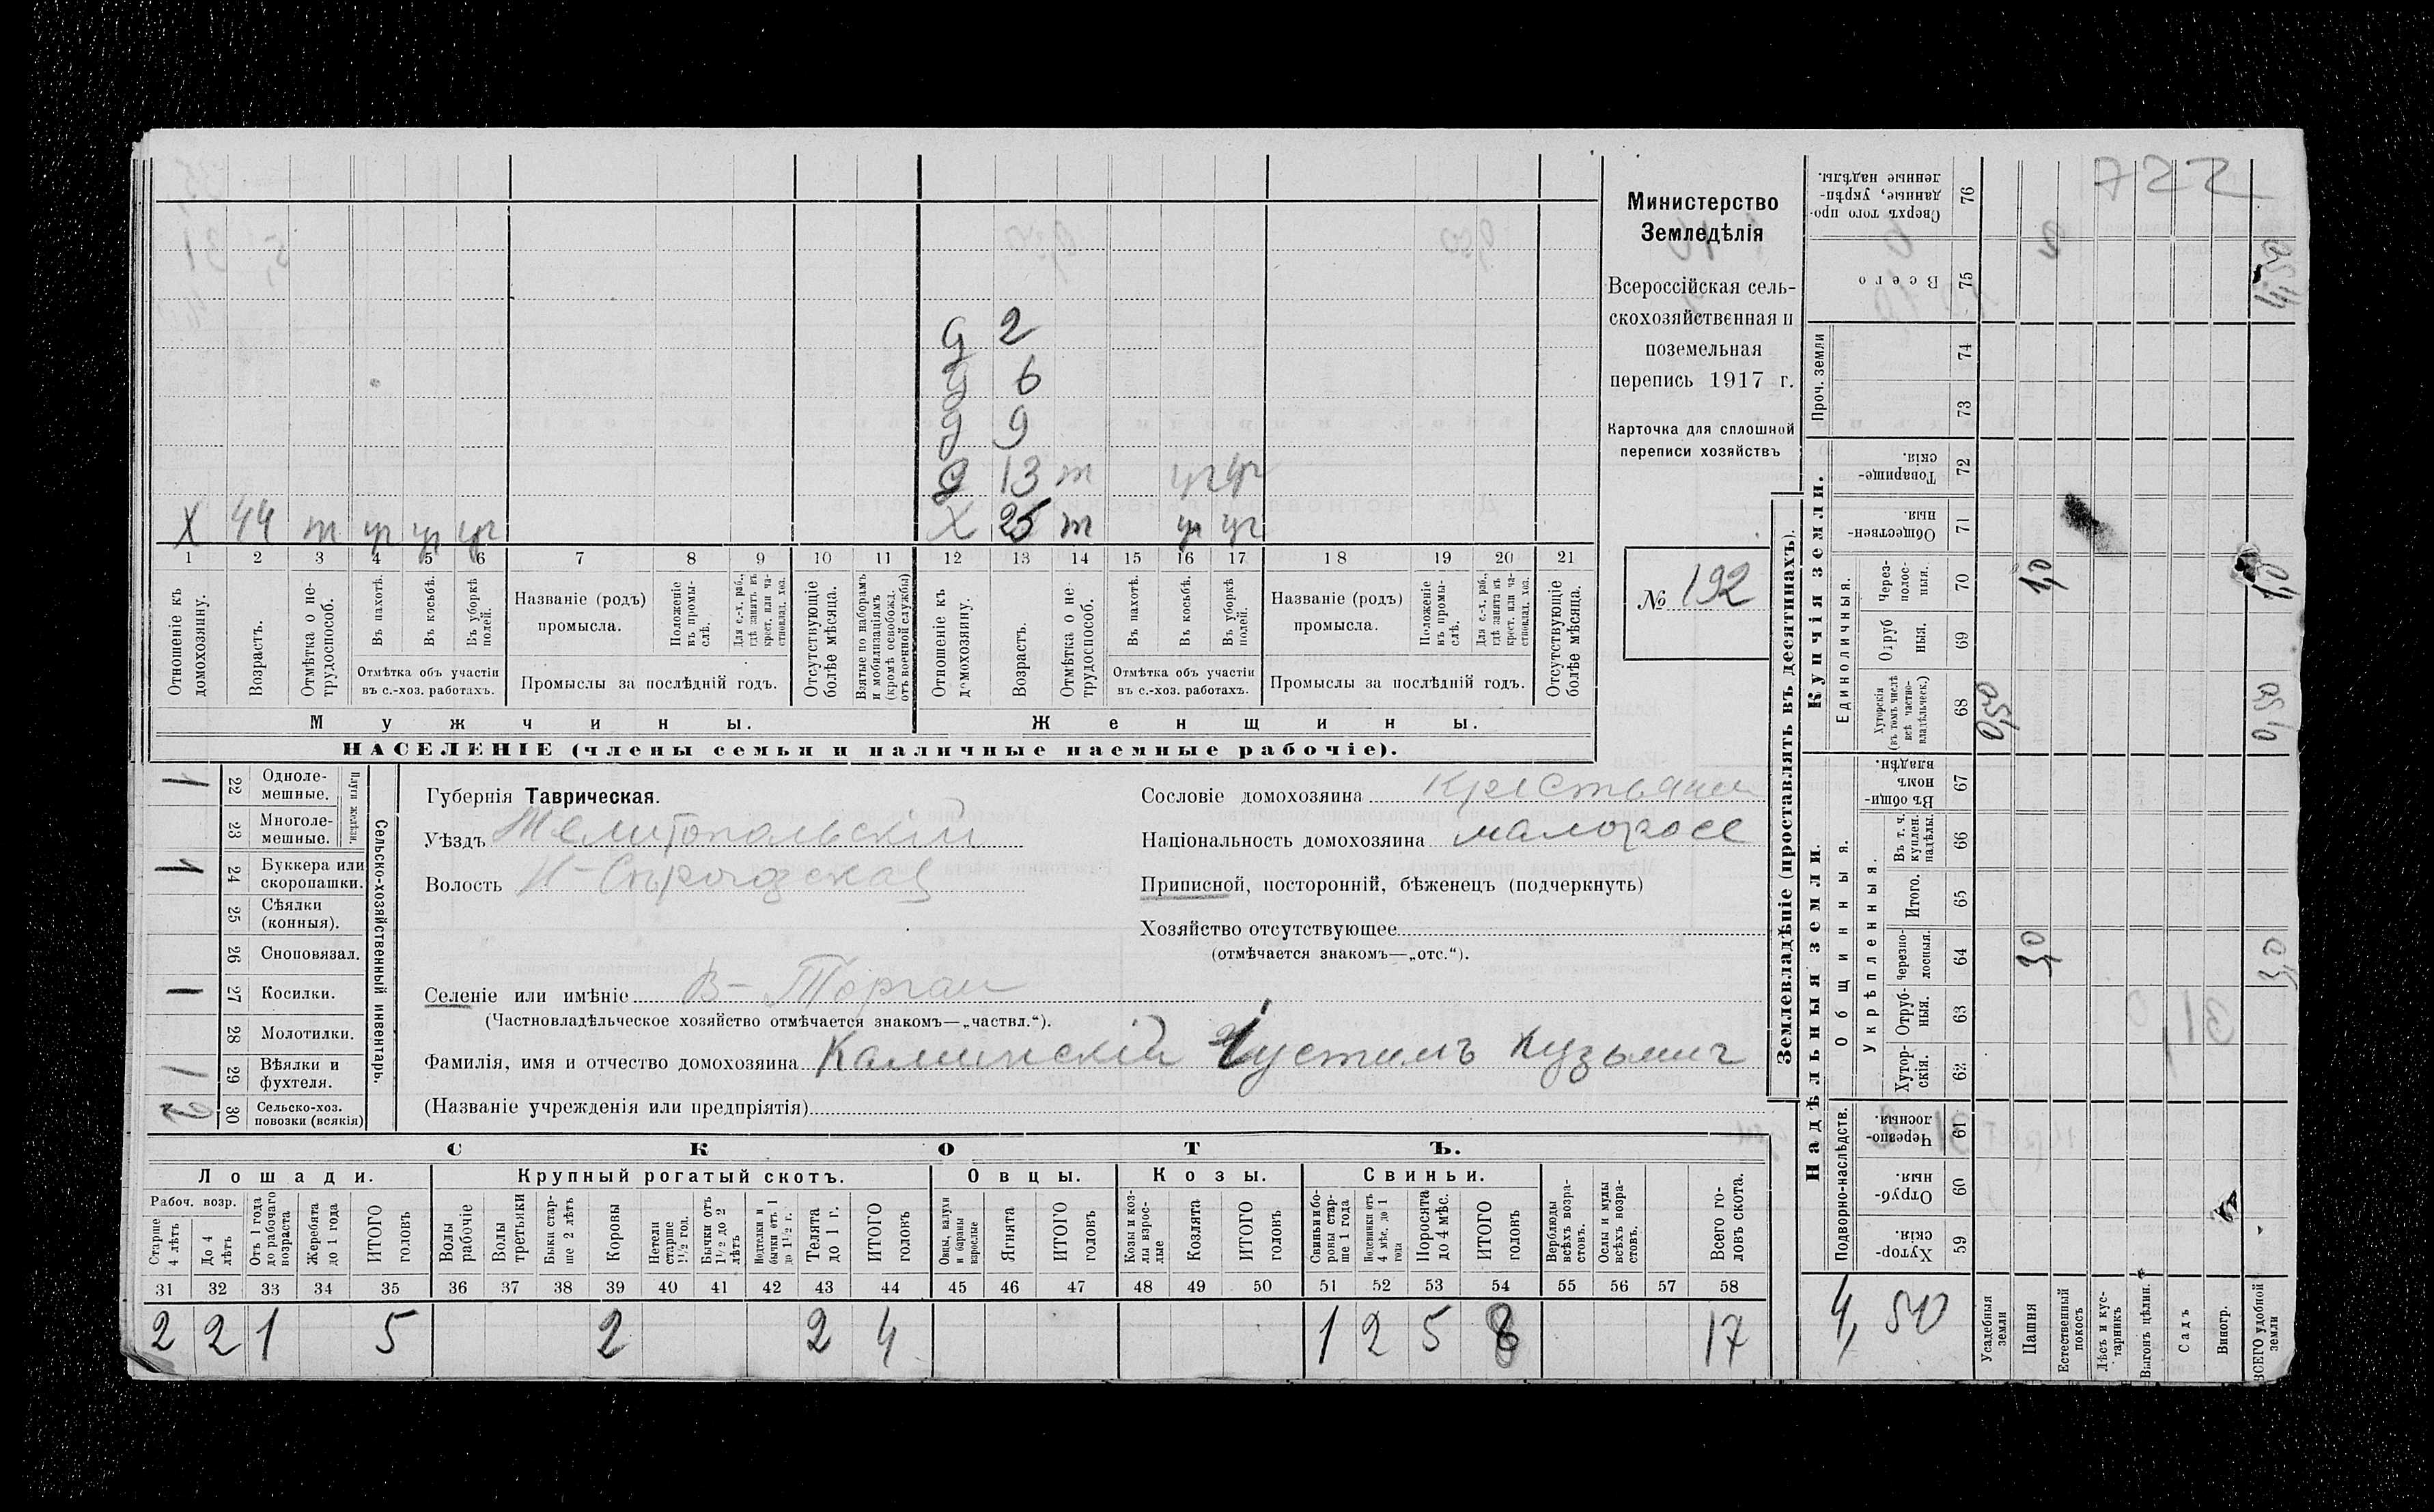 722
Министерство
Земледѣлія
Всероссійская сель-
скохозяйственная и
поземельная
перепись 1917 г.
Карточка для сплошной
переписи хозяйствъ
№ 192
д 2
д 6
д 9
д 13 т уг уг
Х 44 т уг уг уг Х 25 т уг уг
1 2 3 4 5 6 7 8 9 10 11 12 13 14 15 16 17 18 19 20 21
Отношеніе къ домохозяину.
Возрастъ.
Отмѣтка о не-трудоспособ.
Въ пахотѣ.
Въ косьбѣ.
Въ уборкѣ полей.
Отмѣтка объ участіи
въ с.-хоз. работахъ.
Названіе (родъ)
промысла.
Положеніе въ промы-слѣ.
Для с.-х. раб., гдѣ занятъ въ крест. или ча-стновлад. хоз.
Промыслы за послѣдній годъ.
Отсутствующіе болѣе мѣсяца.
Взятые по наборамъ и мобилизаціямъ (кромѣ освобожд. отъ военной службы)
Отношеніе къ домохозяину.
Возрастъ.
Отмѣтка о не-трудоспособ.
Въ пахотѣ.
Въ косьбѣ.
Въ уборкѣ полей.
Отмѣтка объ участіи
въ с.-хоз. работахъ.
Названіе (родъ)
промысла.
Положеніе въ промы-слѣ.
Для с.-х. раб., гдѣ занята въ крест. или ча-стновлад. хоз.
Промыслы за послѣдній годъ.
Отсутствующіе болѣе мѣсяца.
Мужчины. Женщины.
НАСЕЛЕНІЕ (члены семьи и наличные наемные рабочіе).
Сельско-хозяйственный инвентарь.
1 22 Одноле-мешные.
23 Многоле-мешные.
1 24 Буккера или скоропашки.
25 Сѣялки (конныя).
26 Сноповязал.
1 27 Косилки.
28 Молотилки.
1 29 Вѣялки и фухтеля.
2 30 Сельско-хоз. повозки (всякія)
Губернія Таврическая.
Уѣздъ Мелитопольскій
Волость
Селеніе или имѣніе В-Торгаи
(Частновладѣльческое хозяйство отмѣчается знакомъ—„частвл.“).
Фамилія, имя и отчество домохозяина Калинскій Іустимъ Кузьмич
(Названіе учрежденія или предпріятія)
Сословіе домохозяина крестьянин
Національность домохозяина малоросс
Приписной, посторонній, бѣженецъ (подчеркнуть)
Хозяйство отсутствующее
(отмѣчается знакомъ—„отс.“).
СКОТЪ.
Лошади. Крупный рогатый скотъ. Овцы. Козы. Свиньи.
Рабоч. возр.
Старше 4 лѣтъ
До 4 лѣтъ
Отъ 1 года до рабочаго возраста
Жеребята до 1 года
ИТОГО головъ
Волы рабочіе
Волы третьяки
Быки стар-ше 2 лѣтъ
Коровы
Нетели старше 1½ год.
Бычки отъ 1½ до 2 лѣтъ
Нетельки и бычки отъ 1 до 1½ г.
Телята до 1 г.
ИТОГО головъ
Овцы, валухи и бараны взрослые
Ягнята
ИТОГО головъ
Козы и коз-лы взрос-лые
Козлята
ИТОГО головъ
Свиньи и бо-ровы стар-ше 1 года
Подсвинки отъ 4 мѣс. до 1 года
Поросята до 4 мѣс.
ИТОГО головъ
Верблюды всѣхъ возра-стовъ.
Ослы и мулы всѣхъ возра-стовъ.
Всего го-ловъ скота.
31 32 33 34 35 36 37 38 39 40 41 42 43 44 45 46 47 48 49 50 51 52 53 54 55 56 57 58
2 2 1 5 2 2 4 1 2 5 8 17
Землевладѣніе (проставлять въ десятинахъ).
Купчія земли.
Надѣльныя земли.
Сверхъ того про-данные, укрѣп-ленные надѣлы. 76
Всего 75
Проч. земли 74 73
Товарище-скія. 72
Обществен-ныя. 71
Единоличныя.
Через-полос-ныя. 70 1,0 1,0
Отруб ныя. 69
Хуторскія (въ томъ числѣ всѣ частно-владѣльческ.) 68 0,50 0,50
Общинныя.
Въ общи-номъ владѣн. 67
Укрѣпленныя.
Въ т. ч. куплен. надѣлы. 66
Итого. 65
Черезпо-лосныя. 64 3,0 3,0
Отруб-ныя. 63
Хутор-скія. 62
Подворно-наслѣдств.
Черезпо-лосныя 61
Отруб-ныя 60
Хутор-скія. 59
4,50
Усадебныя земли
Пашня
Естественный покосъ
Лѣсъ и кус-тарникъ
Выгонъ цѣлин.
Садъ
Виногр.
ВСЕГО удобной земли